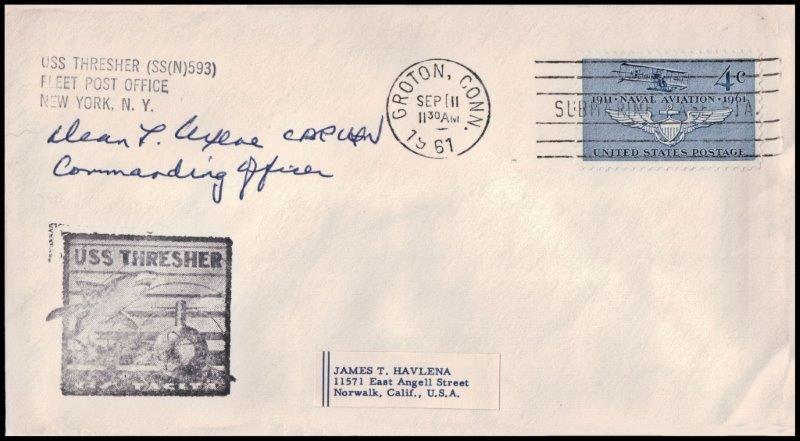 USS THRESHER (SS(N)593)
FLEET POST OFFICE
NEW YORK, N. Y.
Dean L. Axene CAPT USN
Commanding Officer
GROTON, CONN.
SEP 11
11 30 AM
1961
4c
1911 · NAVAL AVIATION · 1961
SUBMARINE
UNITED STATES POSTAGE
USS THRESHER
JAMES T. HAVLENA
11571 East Angell Street
Norwalk, Calif., U.S.A.